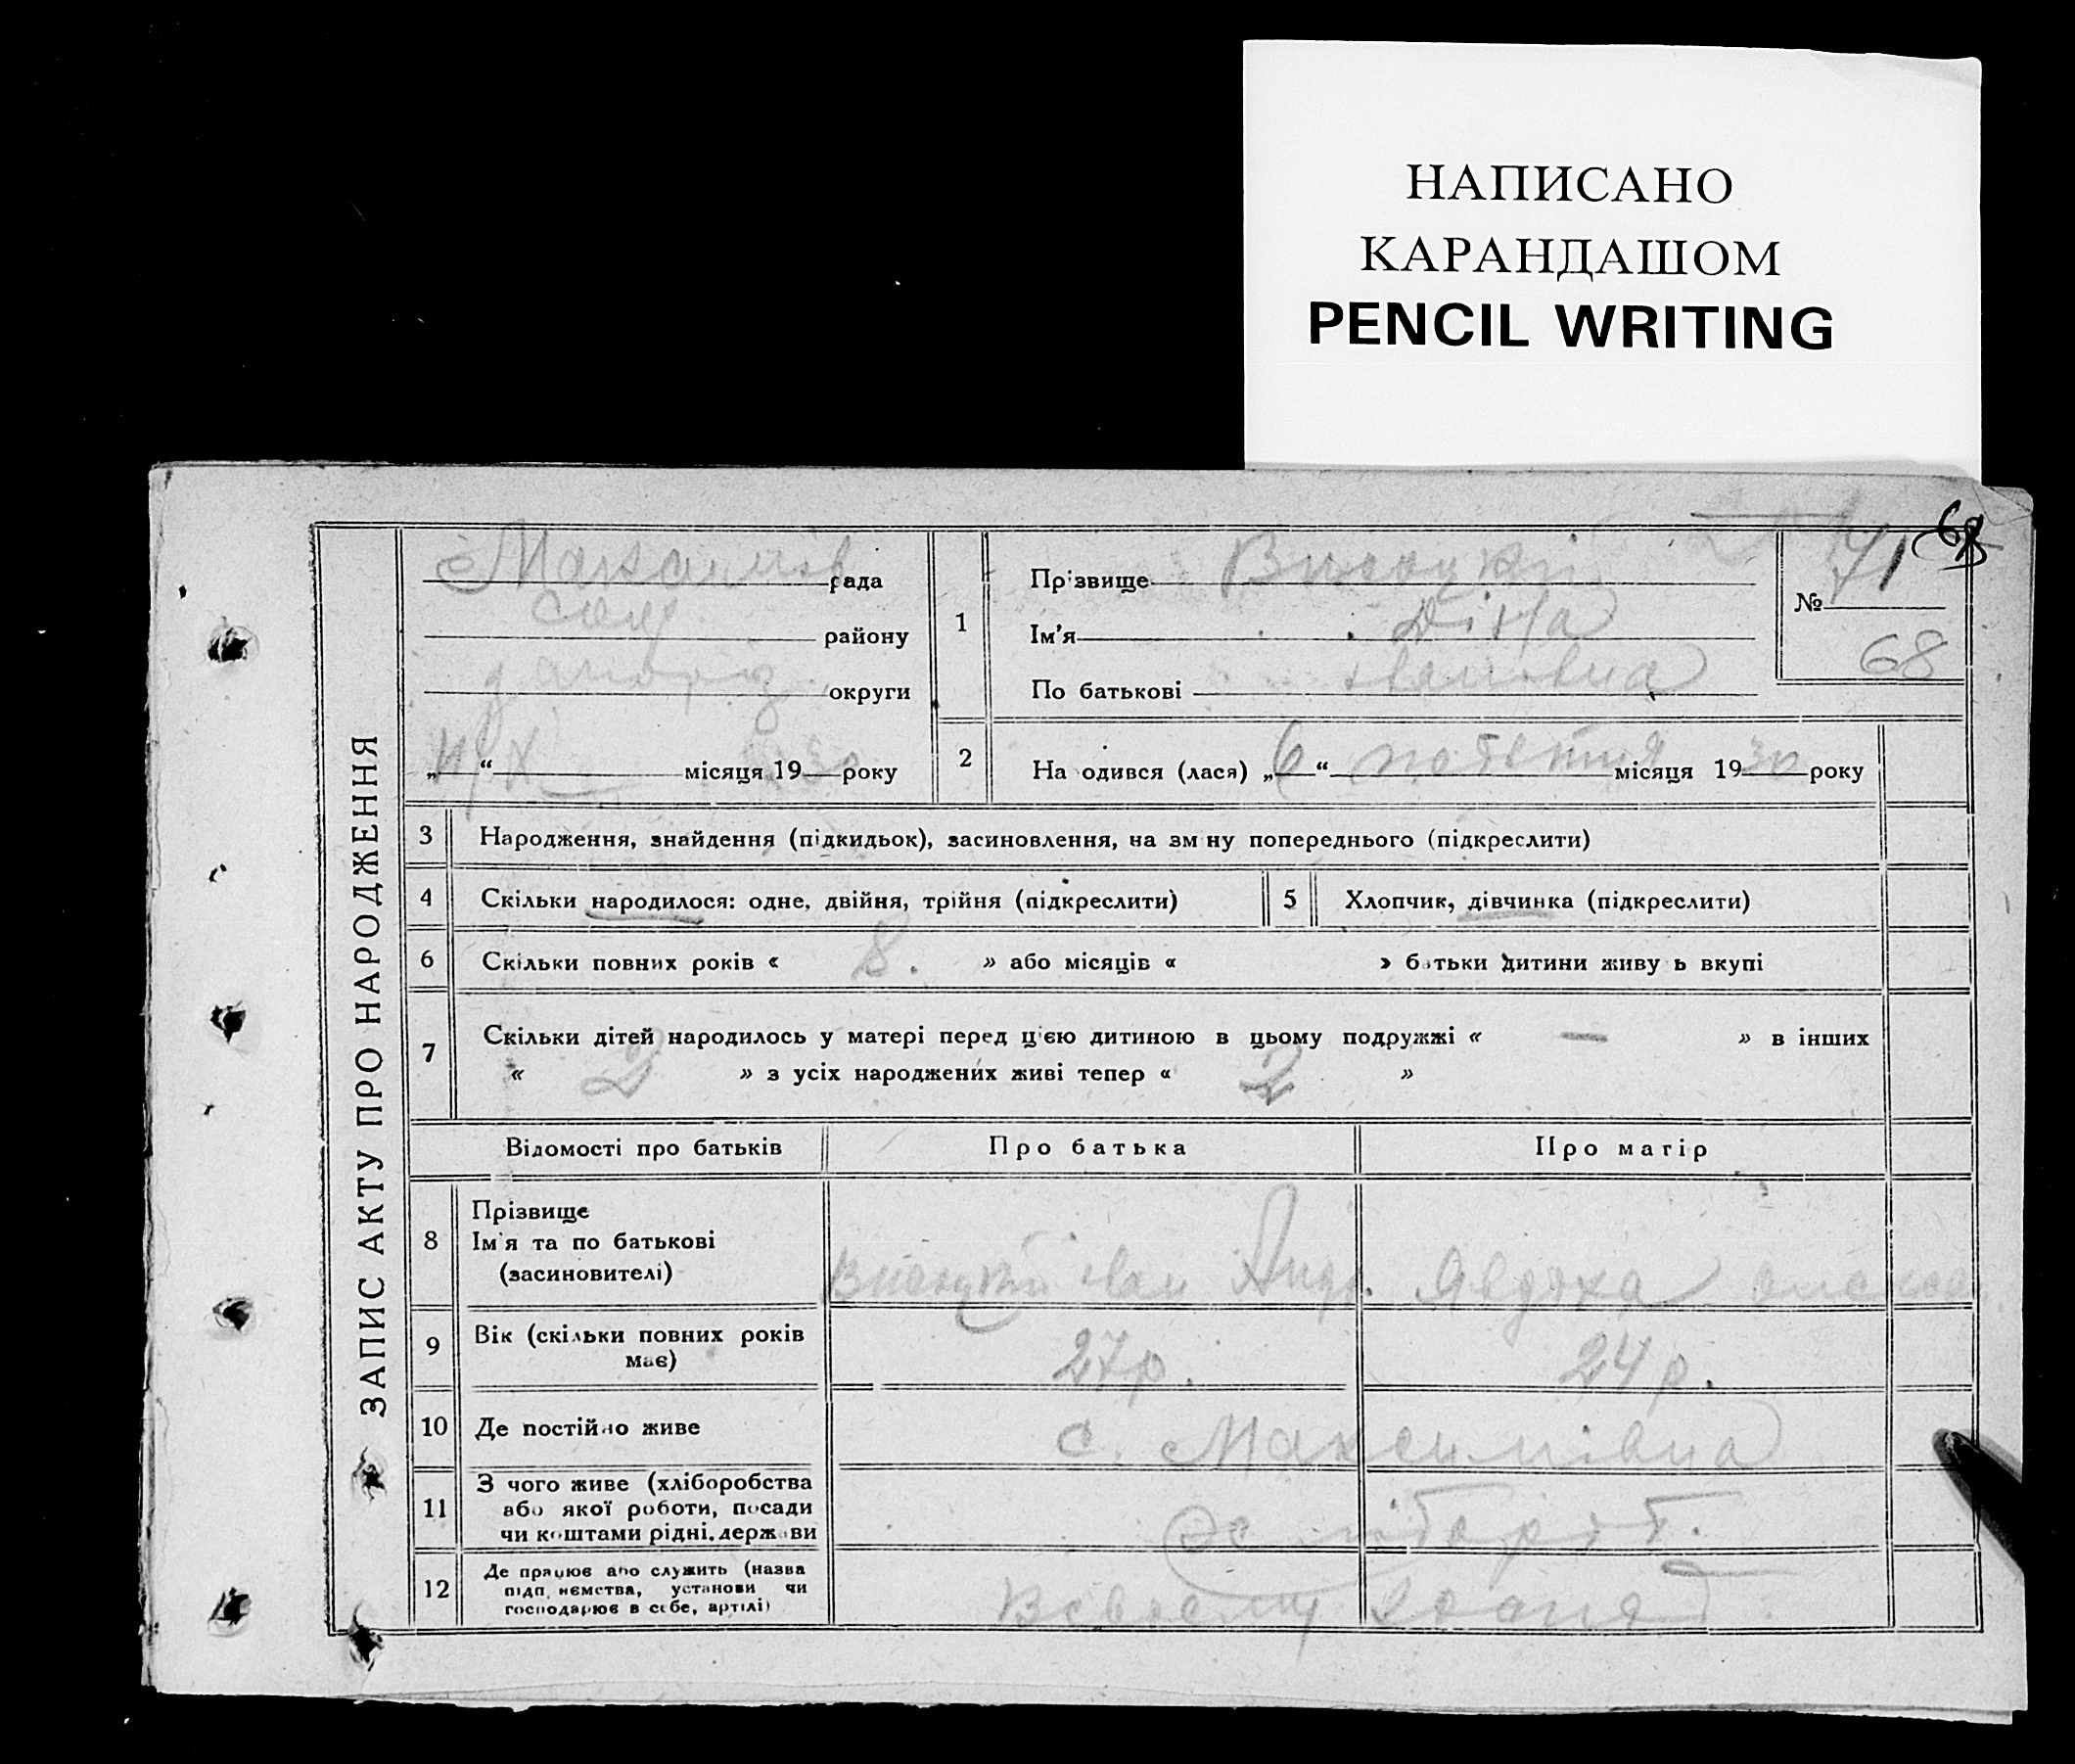 НАПИСАНО
КАРАНДАШОМ
PENCIL WRITING
ЗАПИС АКТУ ПРО НАРОДЖЕННЯ
рада
району
округи
„ “ місяця 1930 року
1
Прізвище Висоцкій
Ім'я Діна
По батькові Івановна
№ 71
68
2 На одився (лася) „6“ жовтня місяця 1930 року
3 Народження, знайдення (підкидьок), засиновлення, на зм ну попереднього (підкреслити)
4 Скільки народилося: одне, двійня, трійня (підкреслити)
5 Хлопчик, дівчинка (підкреслити)
6 Скільки повних років « 8. » або місяців « » батьки дитини живу ь вкупі
7 Скільки дітей народилось у матері перед цією дитиною в цьому подружжі « — » в інших
« 2 » з усіх народжених живі тепер « 2 »
Відомості про батьків Про батька Про матір
8 Прізвище
Ім'я та по батькові
(засиновителі)
Висоцкій Іван Андр. Явдоха
9 Вік (скільки повних років
має)
27р. 24р.
10 Де постійно живе с. Максимівка
11 З чого живе (хліборобства
або якої роботи, посади
чи коштами рідні. держави
12 Де працює або служить (назва
підп. нємства, установи чи
господарює в себе, артілі)